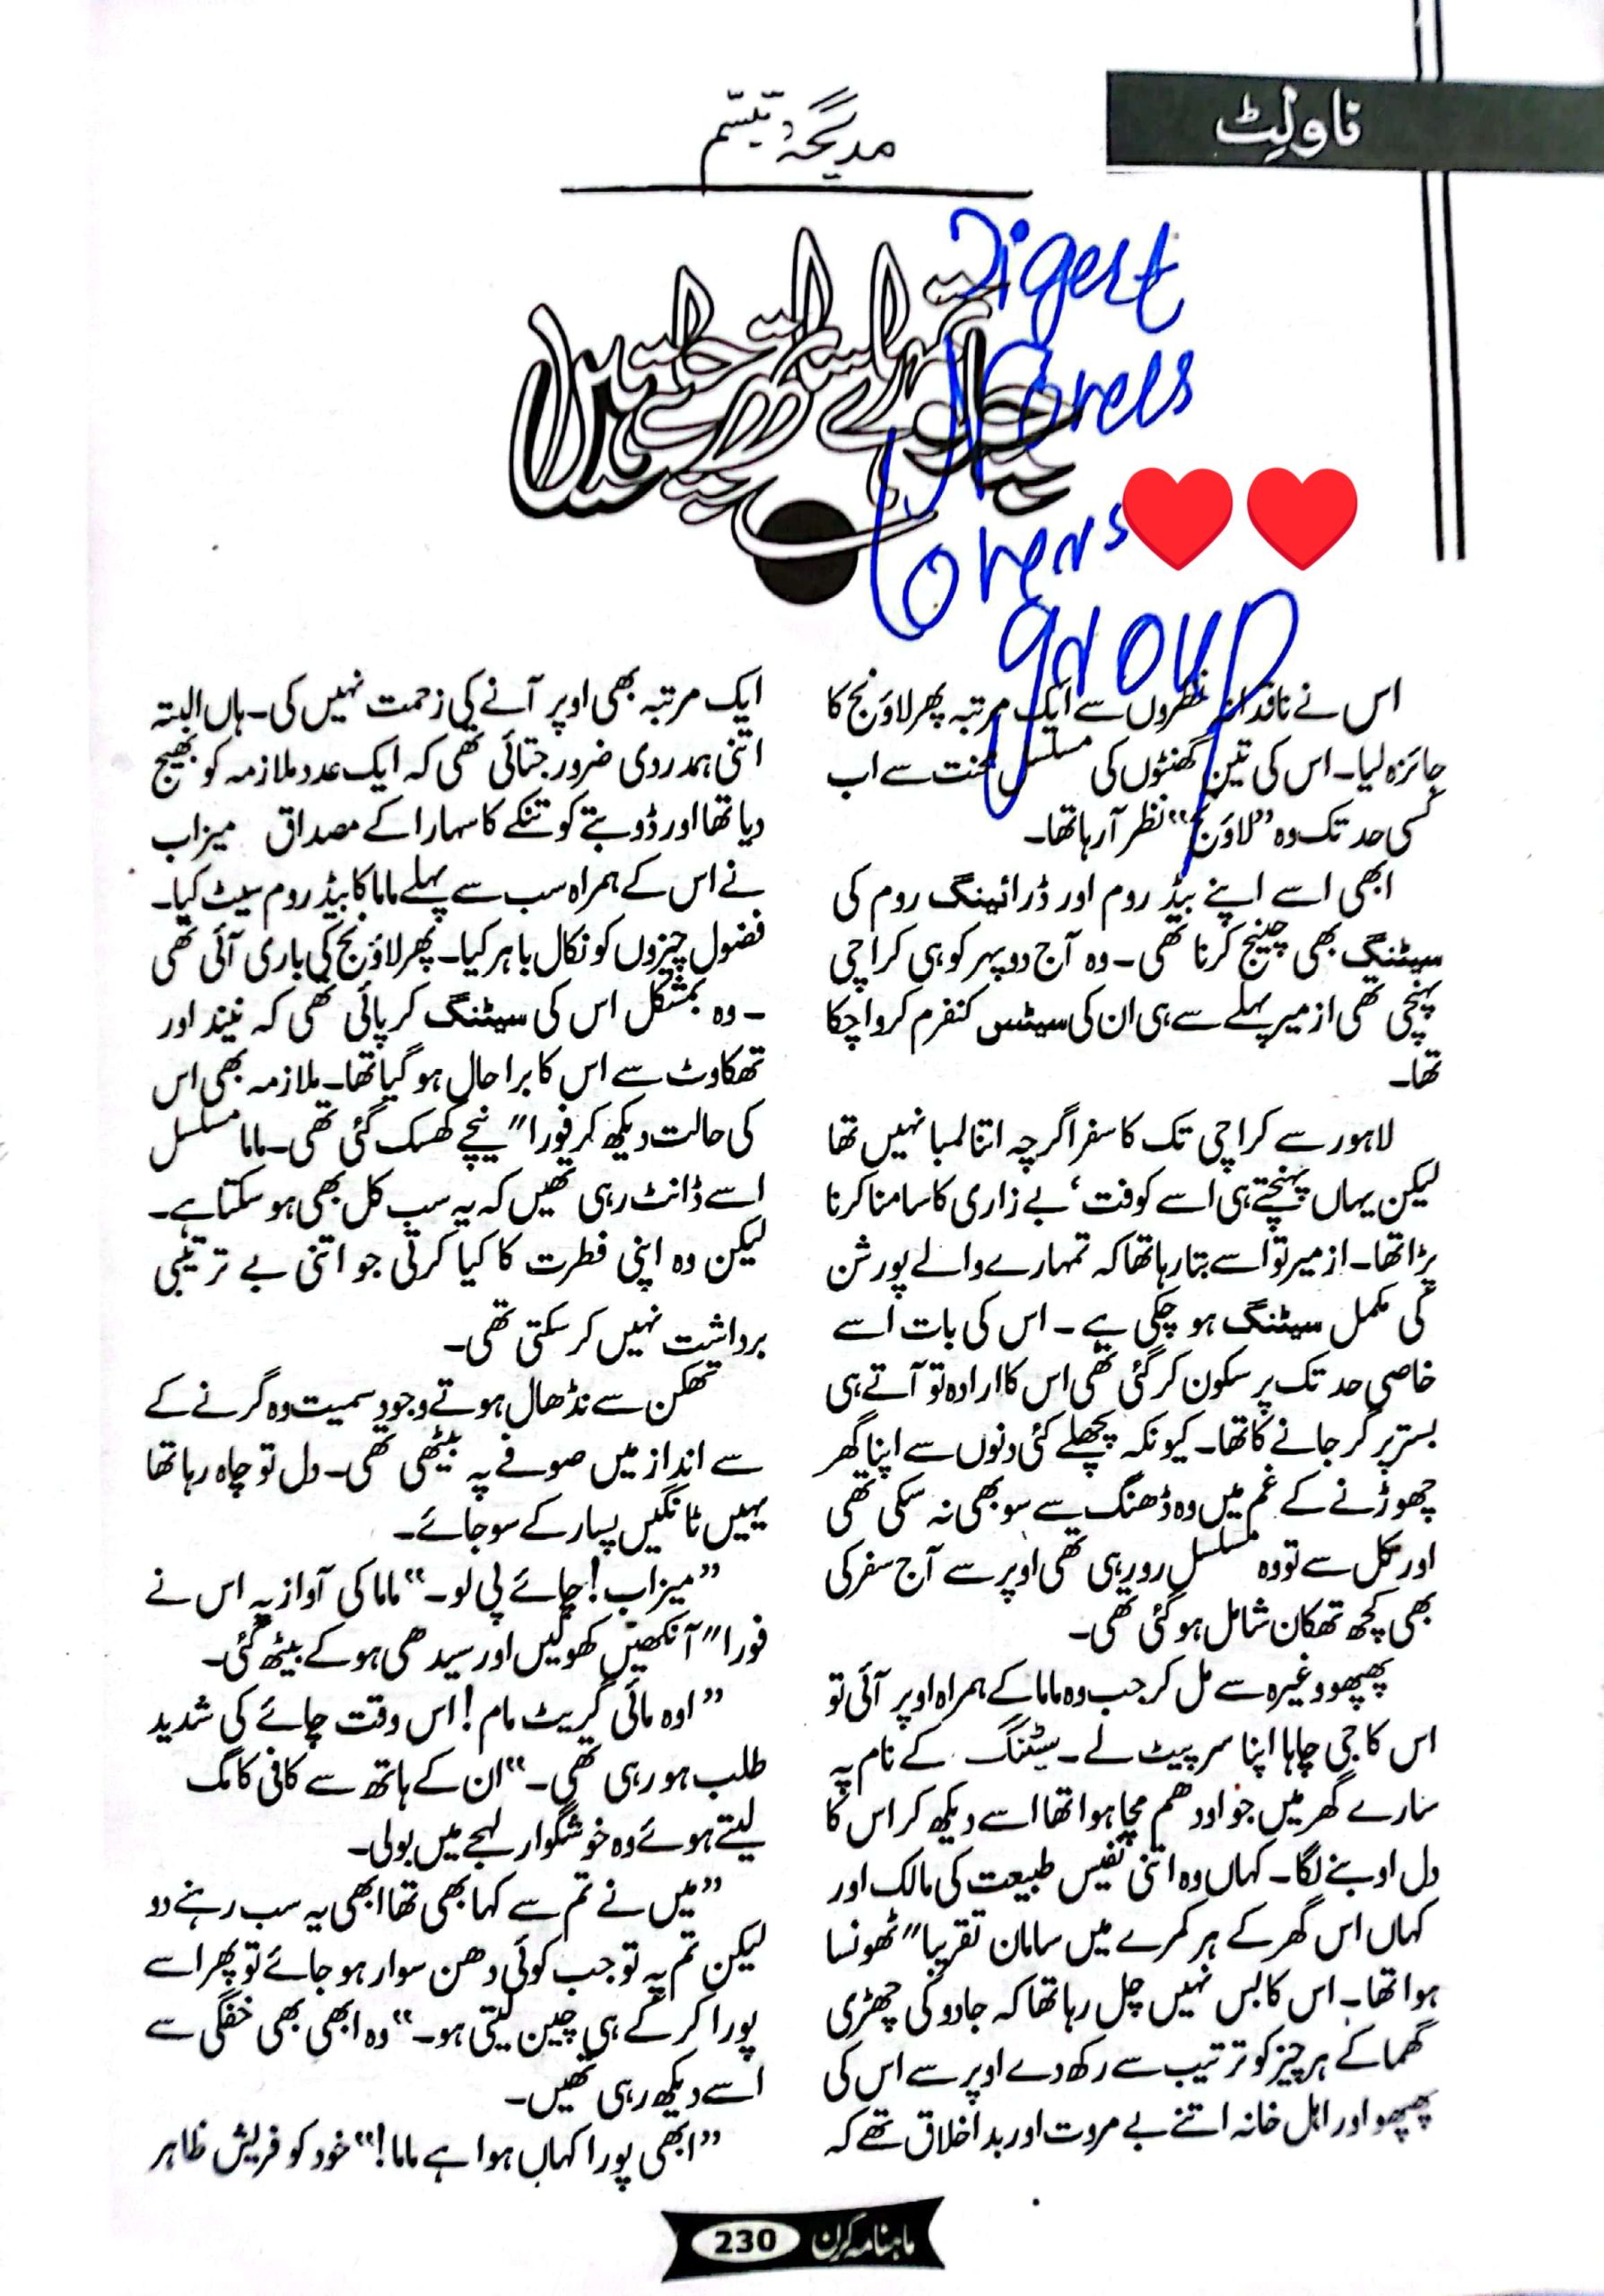 ناولٹ
مدیحہ تبسّم
Digest
Novels
Lovers
group
اس نے ناقدانہ نظروں سے ایک مرتبہ پھر لاؤنج کا
جائزہ لیا۔ اس کی تین گھنٹوں کی مسلسل محنت سے اب
کسی حد تک وہ ”لاؤنج“ نظر آ رہا تھا۔
ابھی اسے اپنے بیڈ روم اور ڈرائینگ روم کی
سیٹنگ بھی چینج کرنا تھی۔ وہ آج دوپہر کو ہی کراچی
پہنچی تھی ازمیر پہلے سے ہی ان کی سیٹس کنفرم کروا چکا
تھا۔
لاہور سے کراچی تک کا سفر اگرچہ اتنا لمبا نہیں تھا
لیکن یہاں پہنچتے ہی اسے کوفت، بے زاری کا سامنا کرنا
پڑا تھا۔ ازمیر تو اسے بتا رہا تھا کہ تمہارے والے پورشن
کی مکمل سیٹنگ ہو چکی ہے۔ اس کی بات اسے
خاصی حد تک پر سکون کر گئی تھی اس کا ارادہ تو آتے ہی
بستر پر گر جانے کا تھا۔ کیونکہ پچھلے کئی دنوں سے اپنا گھر
چھوڑنے کے غم میں وہ ڈھنگ سے سو بھی نہ سکی تھی
اور کل سے تو وہ مسلسل رو رہی تھی اوپر سے آج سفر کی
بھی کچھ تھکان شامل ہو گئی تھی۔
پھپھو وغیرہ سے مل کر جب وہ ماما کے ہمراہ اوپر آئی تو
اس کا جی چاہا اپنا سر پیٹ لے۔ سیٹنگ کے نام پہ
سارے گھر میں جو اودھم مچا ہوا تھا اسے دیکھ کر اس کا
دل اوبنے لگا۔ کہاں وہ اتنی نفیس طبیعت کی مالک اور
کہاں اس گھر کے ہر کمرے میں سامان تقریبا” ٹھونسا
ہوا تھا۔ اس کا بس نہیں چل رہا تھا کہ جادو کی چھڑی
گھما کے ہر چیز کو ترتیب سے رکھ دے اوپر سے اس کی
پھپھو اور اہل خانہ اتنے بے مروت اور بد اخلاق تھے کہ
ایک مرتبہ بھی اوپر آنے کی زحمت نہیں کی۔ ہاں البتہ
اتنی ہمدردی ضرور جتائی تھی کہ ایک عدد ملازمہ کو بھیج
دیا تھا اور ڈوبتے کو تنکے کا سہارا کے مصداق میزاب
نے اس کے ہمراہ سب سے پہلے ماما کا بیڈ روم سیٹ کیا۔
فضول چیزوں کو نکال باہر کیا۔ پھر لاؤنج کی باری آئی تھی
۔ وہ بمشکل اس کی سیٹنگ کر پائی تھی کہ نیند اور
تھکاوٹ سے اس کا برا حال ہو گیا تھا۔ ملازمہ بھی اس
کی حالت دیکھ کر فورا” نیچے کھسک گئی تھی۔ ماما مسلسل
اسے ڈانٹ رہی تھیں کہ یہ سب کل بھی ہو سکتا ہے۔
لیکن وہ اپنی فطرت کا کیا کرتی جو اتنی بے ترتیبی
برداشت نہیں کر سکتی تھی۔
تھکن سے نڈھال ہوتے وجود سمیت وہ گرنے کے
سے انداز میں صوفے پہ بیٹھی تھی۔ دل تو چاہ رہا تھا
یہیں ٹانگیں پسار کے سو جائے۔
”میزاب! چائے پی لو۔“ ماما کی آواز پہ اس نے
فورا” آنکھیں کھولیں اور سیدھی ہو کے بیٹھ گئی۔
”اوہ مائی گریٹ مام! اس وقت چائے کی شدید
طلب ہو رہی تھی۔“ ان کے ہاتھ سے کافی کا مگ
لیتے ہوئے وہ خوشگوار لہجے میں بولی۔
”میں نے تم سے کہا بھی تھا ابھی یہ سب رہنے دو
لیکن تم پہ تو جب کوئی دھن سوار ہو جائے تو پھر اسے
پورا کر کے ہی چین لیتی ہو۔“ وہ ابھی بھی خفگی سے
اسے دیکھ رہی تھیں۔
”ابھی پورا کہاں ہوا ہے ماما!“ خود کو فریش ظاہر
ماہنامہ کرن 230